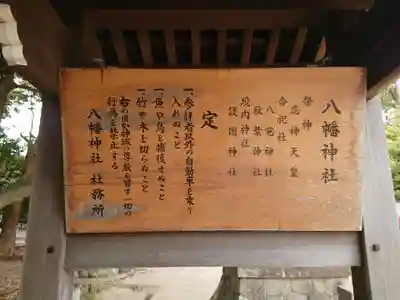 八幡神社
祭神
應神天皇
合祀社
八竜神社
秋葉神社
境内神社
護国神社
定
一、参拝者以外の自動車を乗り
入れぬこと
一、魚や鳥を捕獲せぬこと
一、竹や木を切らぬこと
右の外神域の尊厳を冒す一切の
行為を禁止する
八幡神社 社務所